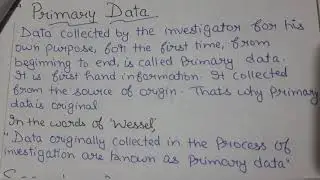 " Primary Data
Data collected by the investigator for his
own purpose, for the first time, from
beginning to end, is called Primary data.
It is first hand information. It collected
from the source of origin. Thats why Primary
data is original
In the words of 'Wessel',
"Data originally collected in the Process of
investigation are known as Primary data"